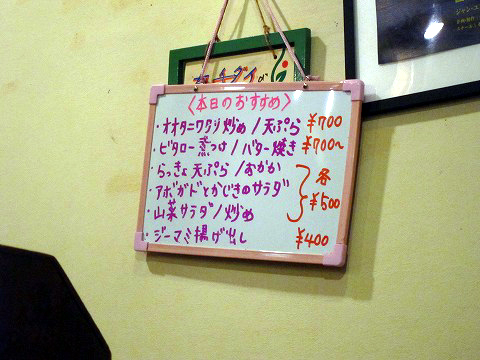 〈本日のおすすめ〉
・オオタニワタリ炒め/天ぷら ¥700
・ビタロー煮つけ/バター焼き ¥700~
・らっきょ天ぷら/おかか
・アボガドとかじきのサラダ
・山菜サラダ/炒め
各¥500
・ジーマミ揚げ出し ¥400